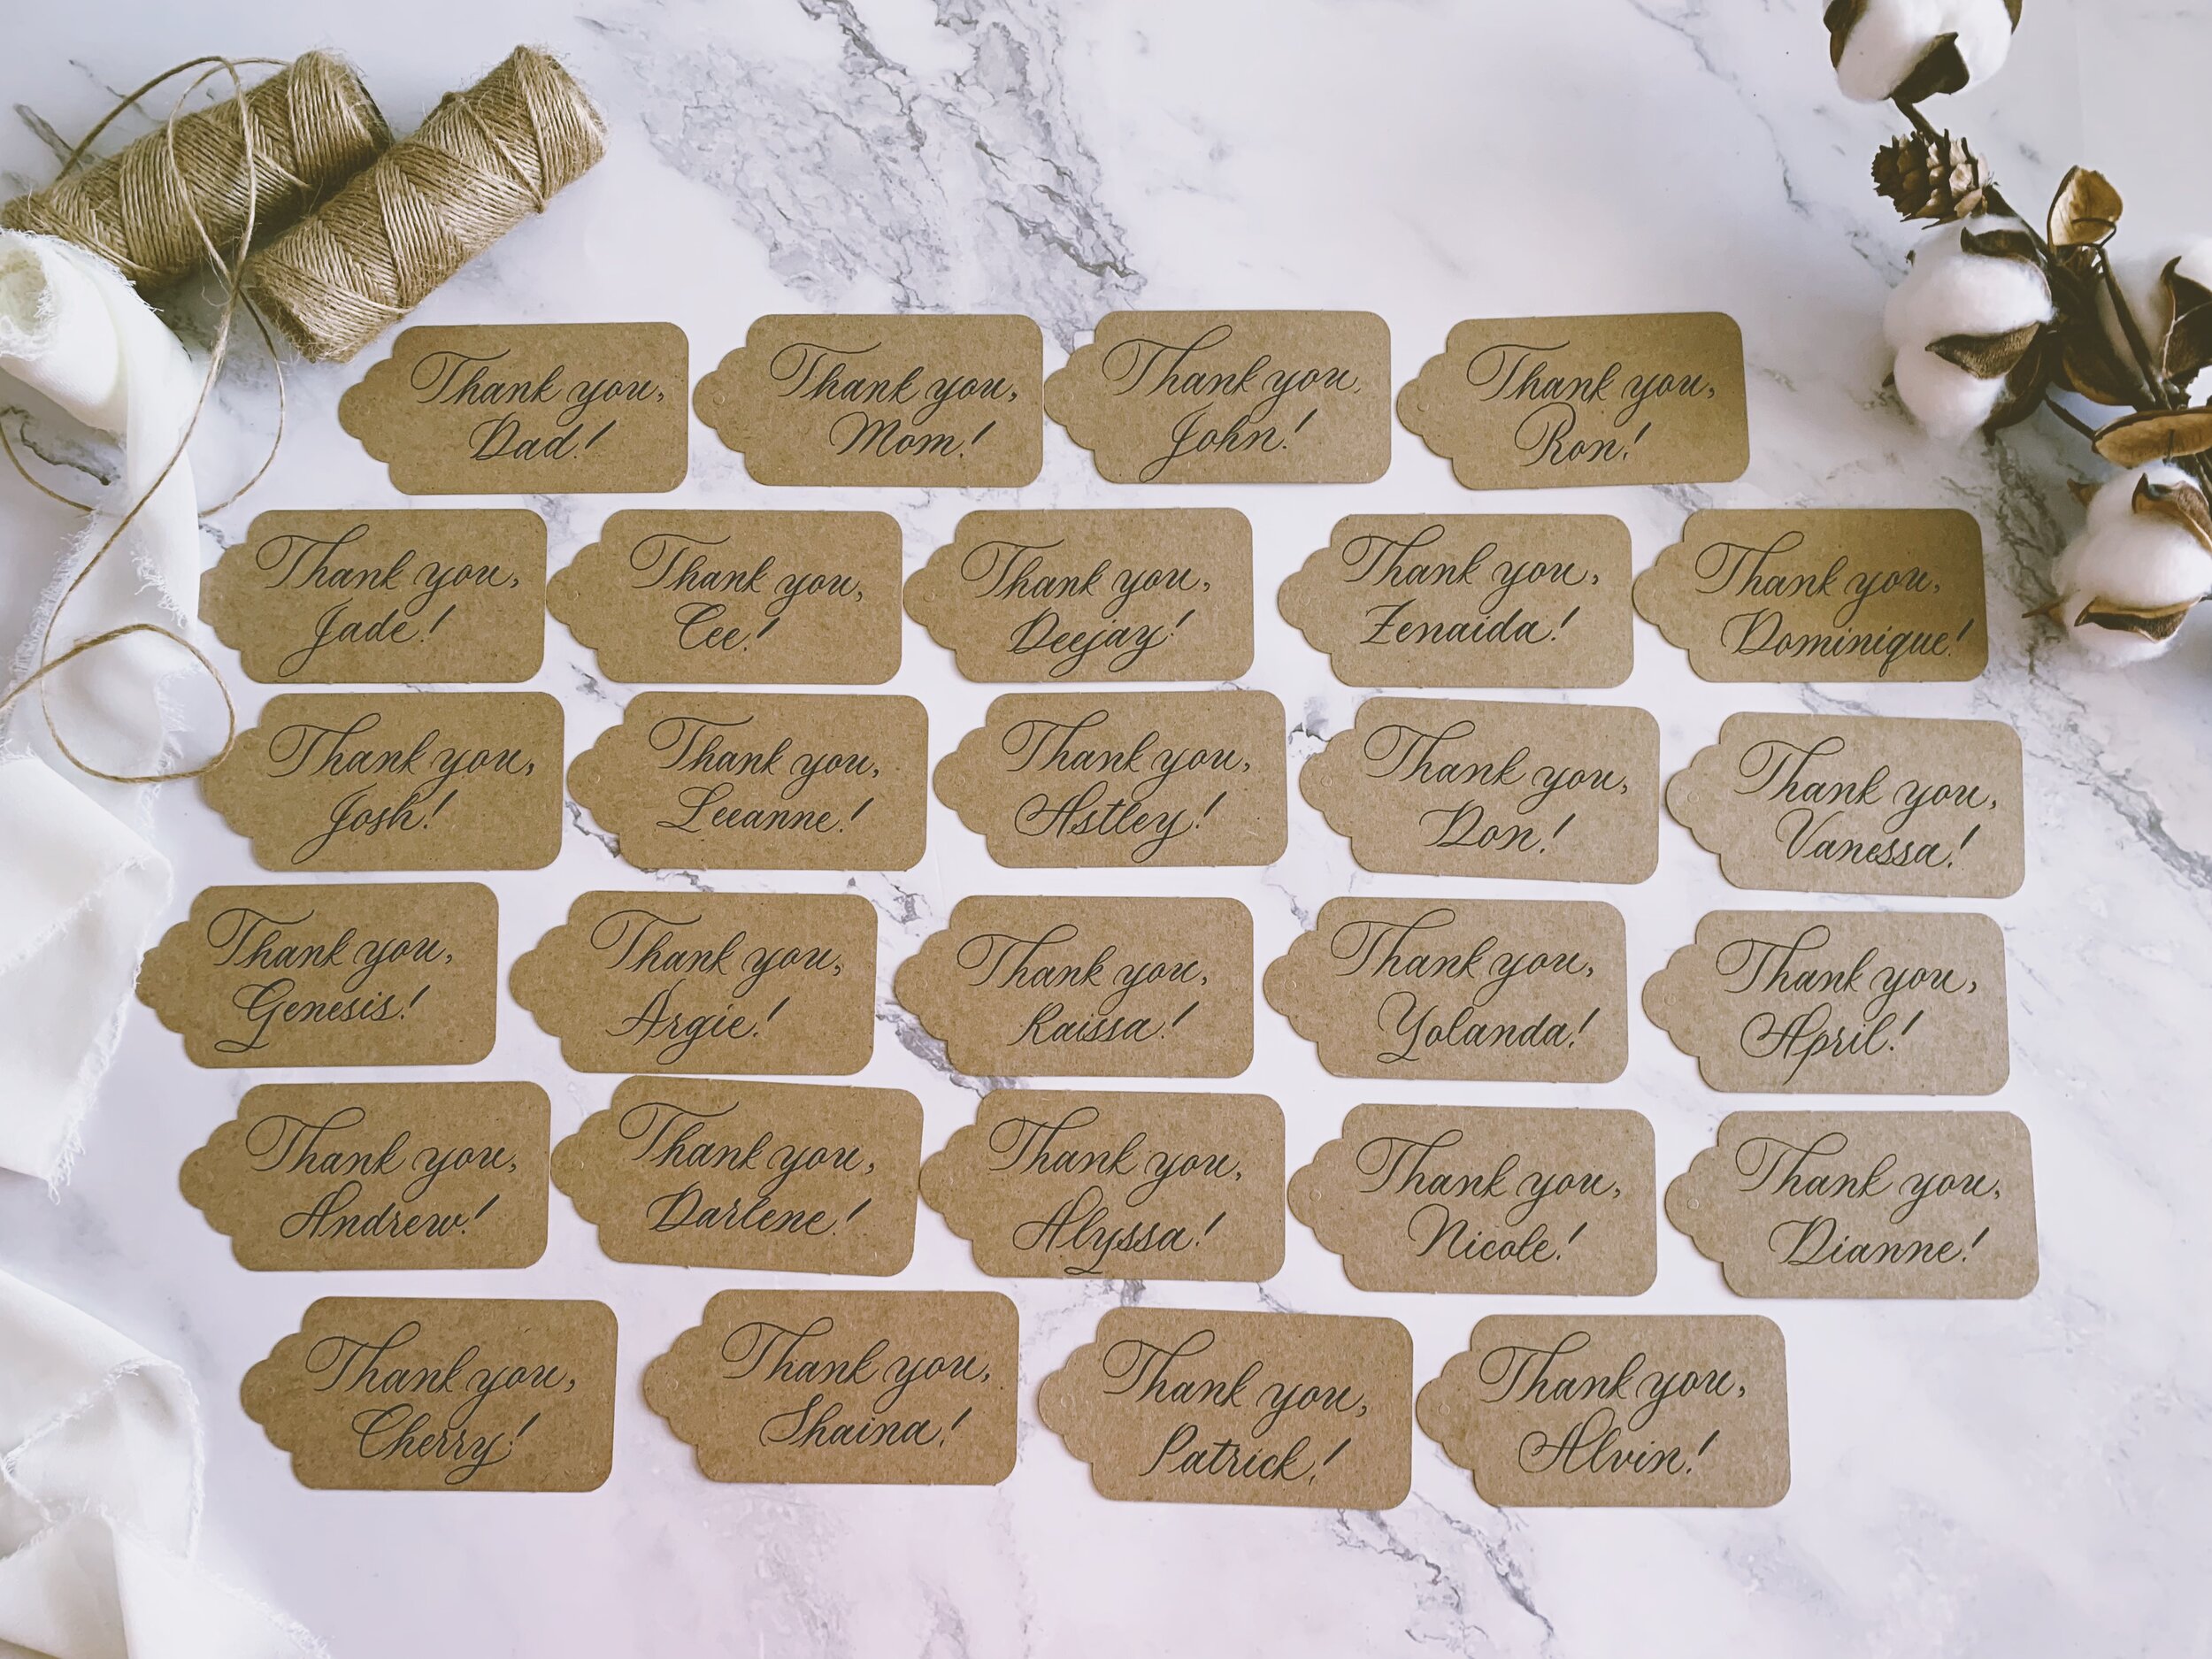 Thank you,
Dad!
Thank you,
Mom!
Thank you,
John!
Thank you,
Ron!
Thank you,
Jade!
Thank you,
Cee!
Thank you,
Deejay!
Thank you,
Zenaida!
Thank you,
Dominique!
Thank you,
Josh!
Thank you,
Leeanne!
Thank you,
Astley!
Thank you,
Don!
Thank you,
Vanessa!
Thank you,
Genesis!
Thank you,
Argie!
Thank you,
Raissa!
Thank you,
Yolanda!
Thank you,
April!
Thank you,
Andrew!
Thank you,
Darlene!
Thank you,
Alyssa!
Thank you,
Nicole!
Thank you,
Dianne!
Thank you,
Cherry!
Thank you,
Shaina!
Thank you,
Patrick!
Thank you,
Alvin!